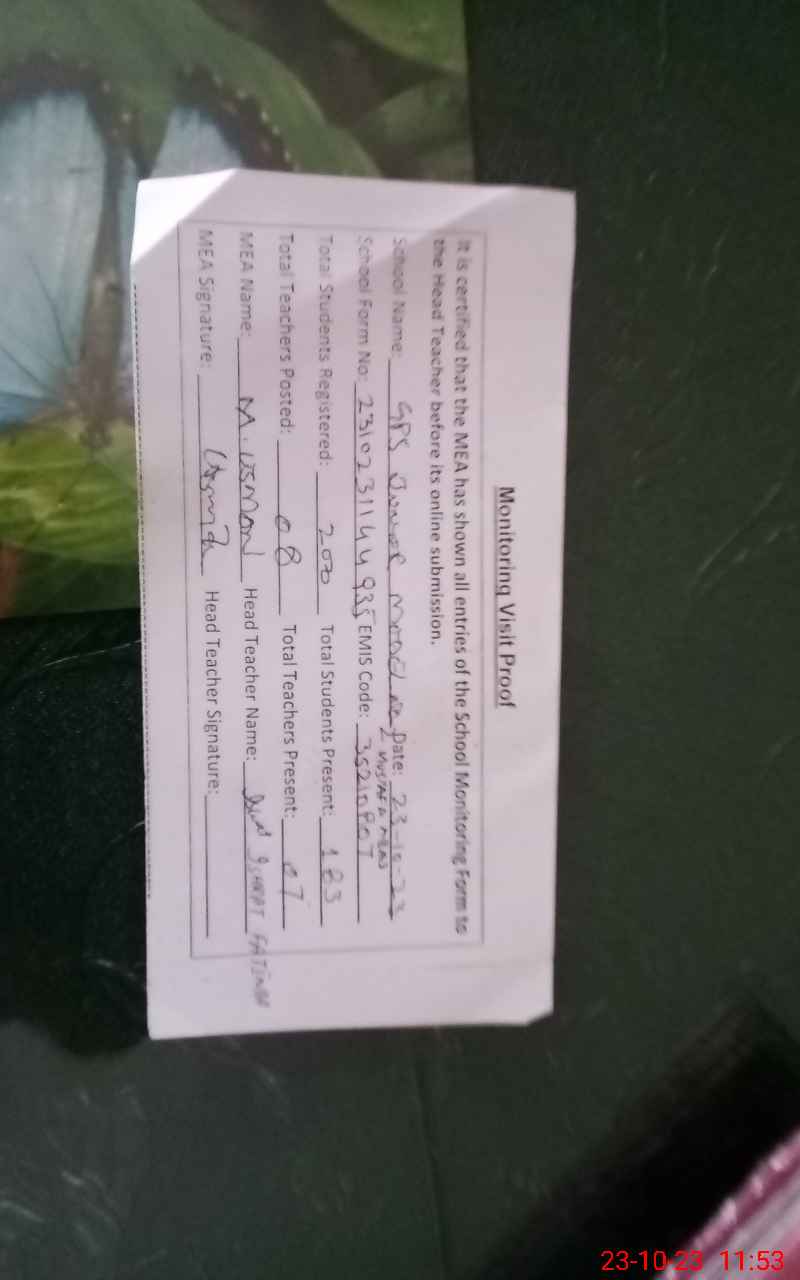 Monitoring Visit Proof
It is certified that the MEA has shown all entries of the School Monitoring Form to
the Head Teacher before its online submission.
School Name: GPS Junior Model Date: 23-10-23
MUSTAFA
School Form No: 2310231144935 EMIS Code: 35210807
Total Students Registered: 200 Total Students Present: 183
Total Teachers Posted: 08 Total Teachers Present: 07
MEA Name: M. USMAN Head Teacher Name: ISHRAT FATIMA
MEA Signature: Head Teacher Signature:
23-10-23 11:53